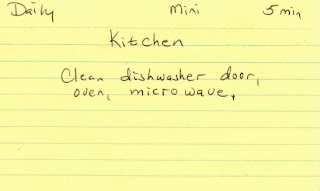 Daily Mini 5 min
Kitchen
Clean dishwasher door,
oven, microwave.